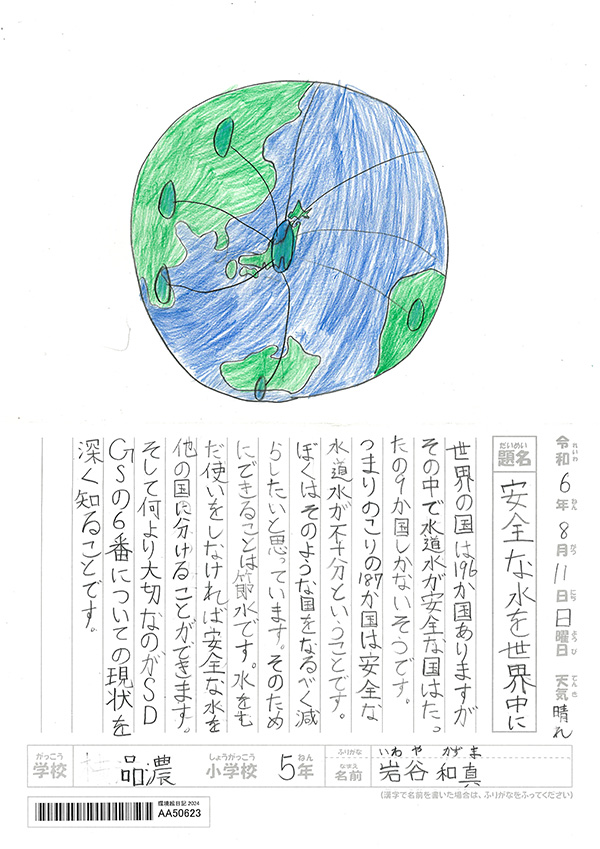 令和6年8月11日日曜日 天気 晴れ
れいわ ねん がつ にち ようび てんき
だいめい
題名 安全な水を世界中に
世界の国は196か国ありますが
その中で水道水が安全な国はたっ
たの9か国しかないそうです。
つまりのこりの187か国は安全な
水道水が不十分ということです。
ぼくはそのような国をなるべく減
らしたいと思っています。そのため
にできることは節水です。水をむ
だ使いをしなければ安全な水を
他の国に分けることができます。
そして何より大切なのがSD
GSの6番についての現状を
深く知ることです。
がっこう しょうがっこう ねん
学校 品濃 小学校 5年
ふりがな いわや かずま
なまえ
名前 岩谷 和真
(漢字で名前を書いた場合は、ふりがなをふってください)
環境絵日記2024
AA50623